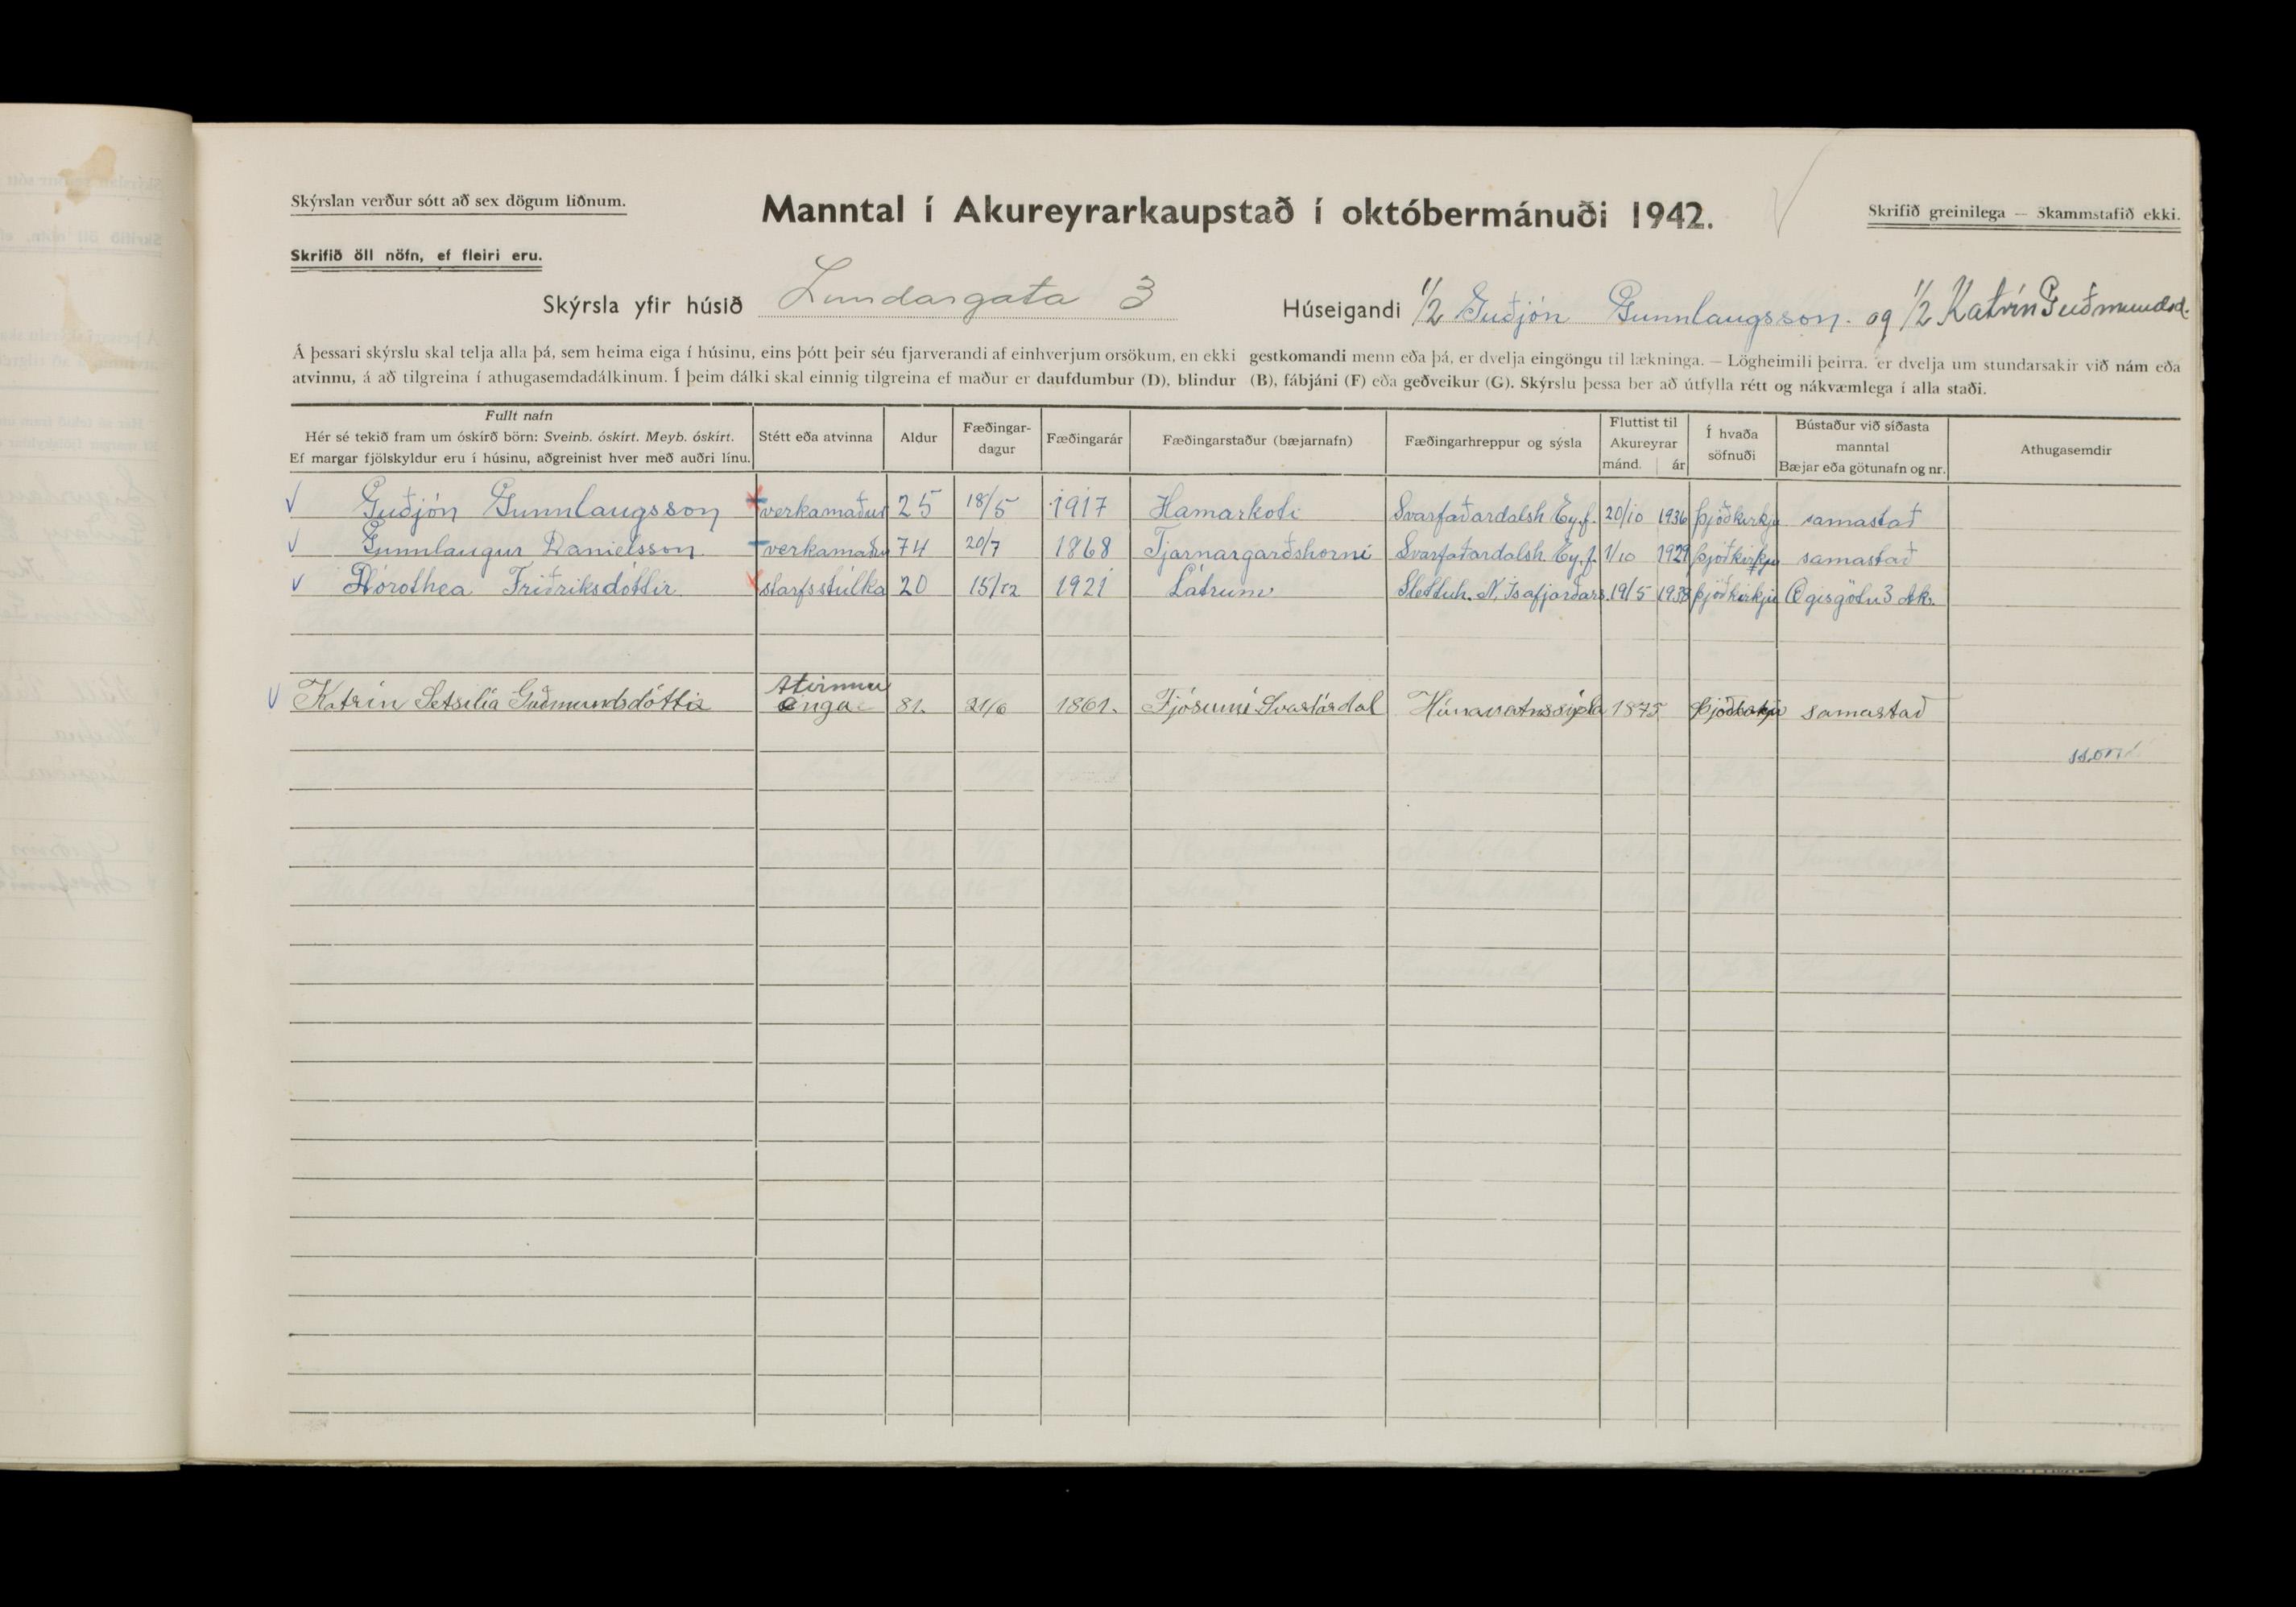 Skýrslan verður sótt að sex dögum liðnum.
Manntal í Akureyrarkaupstað í októbermánuði 1942.
Skrifið greinilega — Skammstafið ekki.
Skrifið öll nöfn, ef fleiri eru.
Skýrsla yfir húsið Lundargata 3 Húseigandi 1/2 Guðjón Gunnlaugsson. og 1/2 Katrín Guðmundsd.
Á þessari skýrslu skal telja alla þá, sem heima eiga í húsinu, eins þótt þeir séu fjarverandi af einhverjum orsökum, en ekki gestkomandi menn eða þá, er dvelja eingöngu til lækninga. — Lögheimili þeirra, er dvelja um stundarsakir við nám eða
atvinnu, á að tilgreina í athugasemdadálkinum. Í þeim dálki skal einnig tilgreina ef maður er daufdumbur (D), blindur (B), fábjáni (F) eða geðveikur (G). Skýrslu þessa ber að útfylla rétt og nákvæmlega í alla staði.
Fullt nafn
Hér sé tekið fram um óskírð börn: Sveinb. óskírt. Meyb. óskírt.
Ef margar fjölskyldur eru í húsinu, aðgreinist hver með auðri línu.
Stétt eða atvinna
Aldur
Fæðingar-
dagur
Fæðingarár
Fæðingarstaður (bæjarnafn)
Fæðingarhreppur og sýsla
Fluttist til
Akureyrar
mánd. ár
Í hvaða
söfnuði
Bústaður við síðasta
manntal
Bæjar eða götunafn og nr.
Athugasemdir
Guðjón Gunnlaugsson verkamaður 25 18/5 1917 Hamarkoti Svarfaðardalsh Eyf. 20/10 1936 þjóðkirkju samastað
Gunnlaugur Daníelsson verkamaður 74 20/7 1868 Tjarnargarðshorni Svarfaðardalsh. Eyf. 1/10 1929 þjóðkirkju samastað
Þórothea Friðriksdóttir starfsstúlka 20 15/12 1921 Látrum Sléttuh. N. Ísafjarðars. 19/5 1938 þjóðkirkju Ægisgötu 3 Ak.
Katrín Setselía Guðmundsdóttir Atvinnu enga 81. 21/6 1861. Fjósum í Svartárdal Húnavatnssýsla 1875 þjóðkirkju samastað